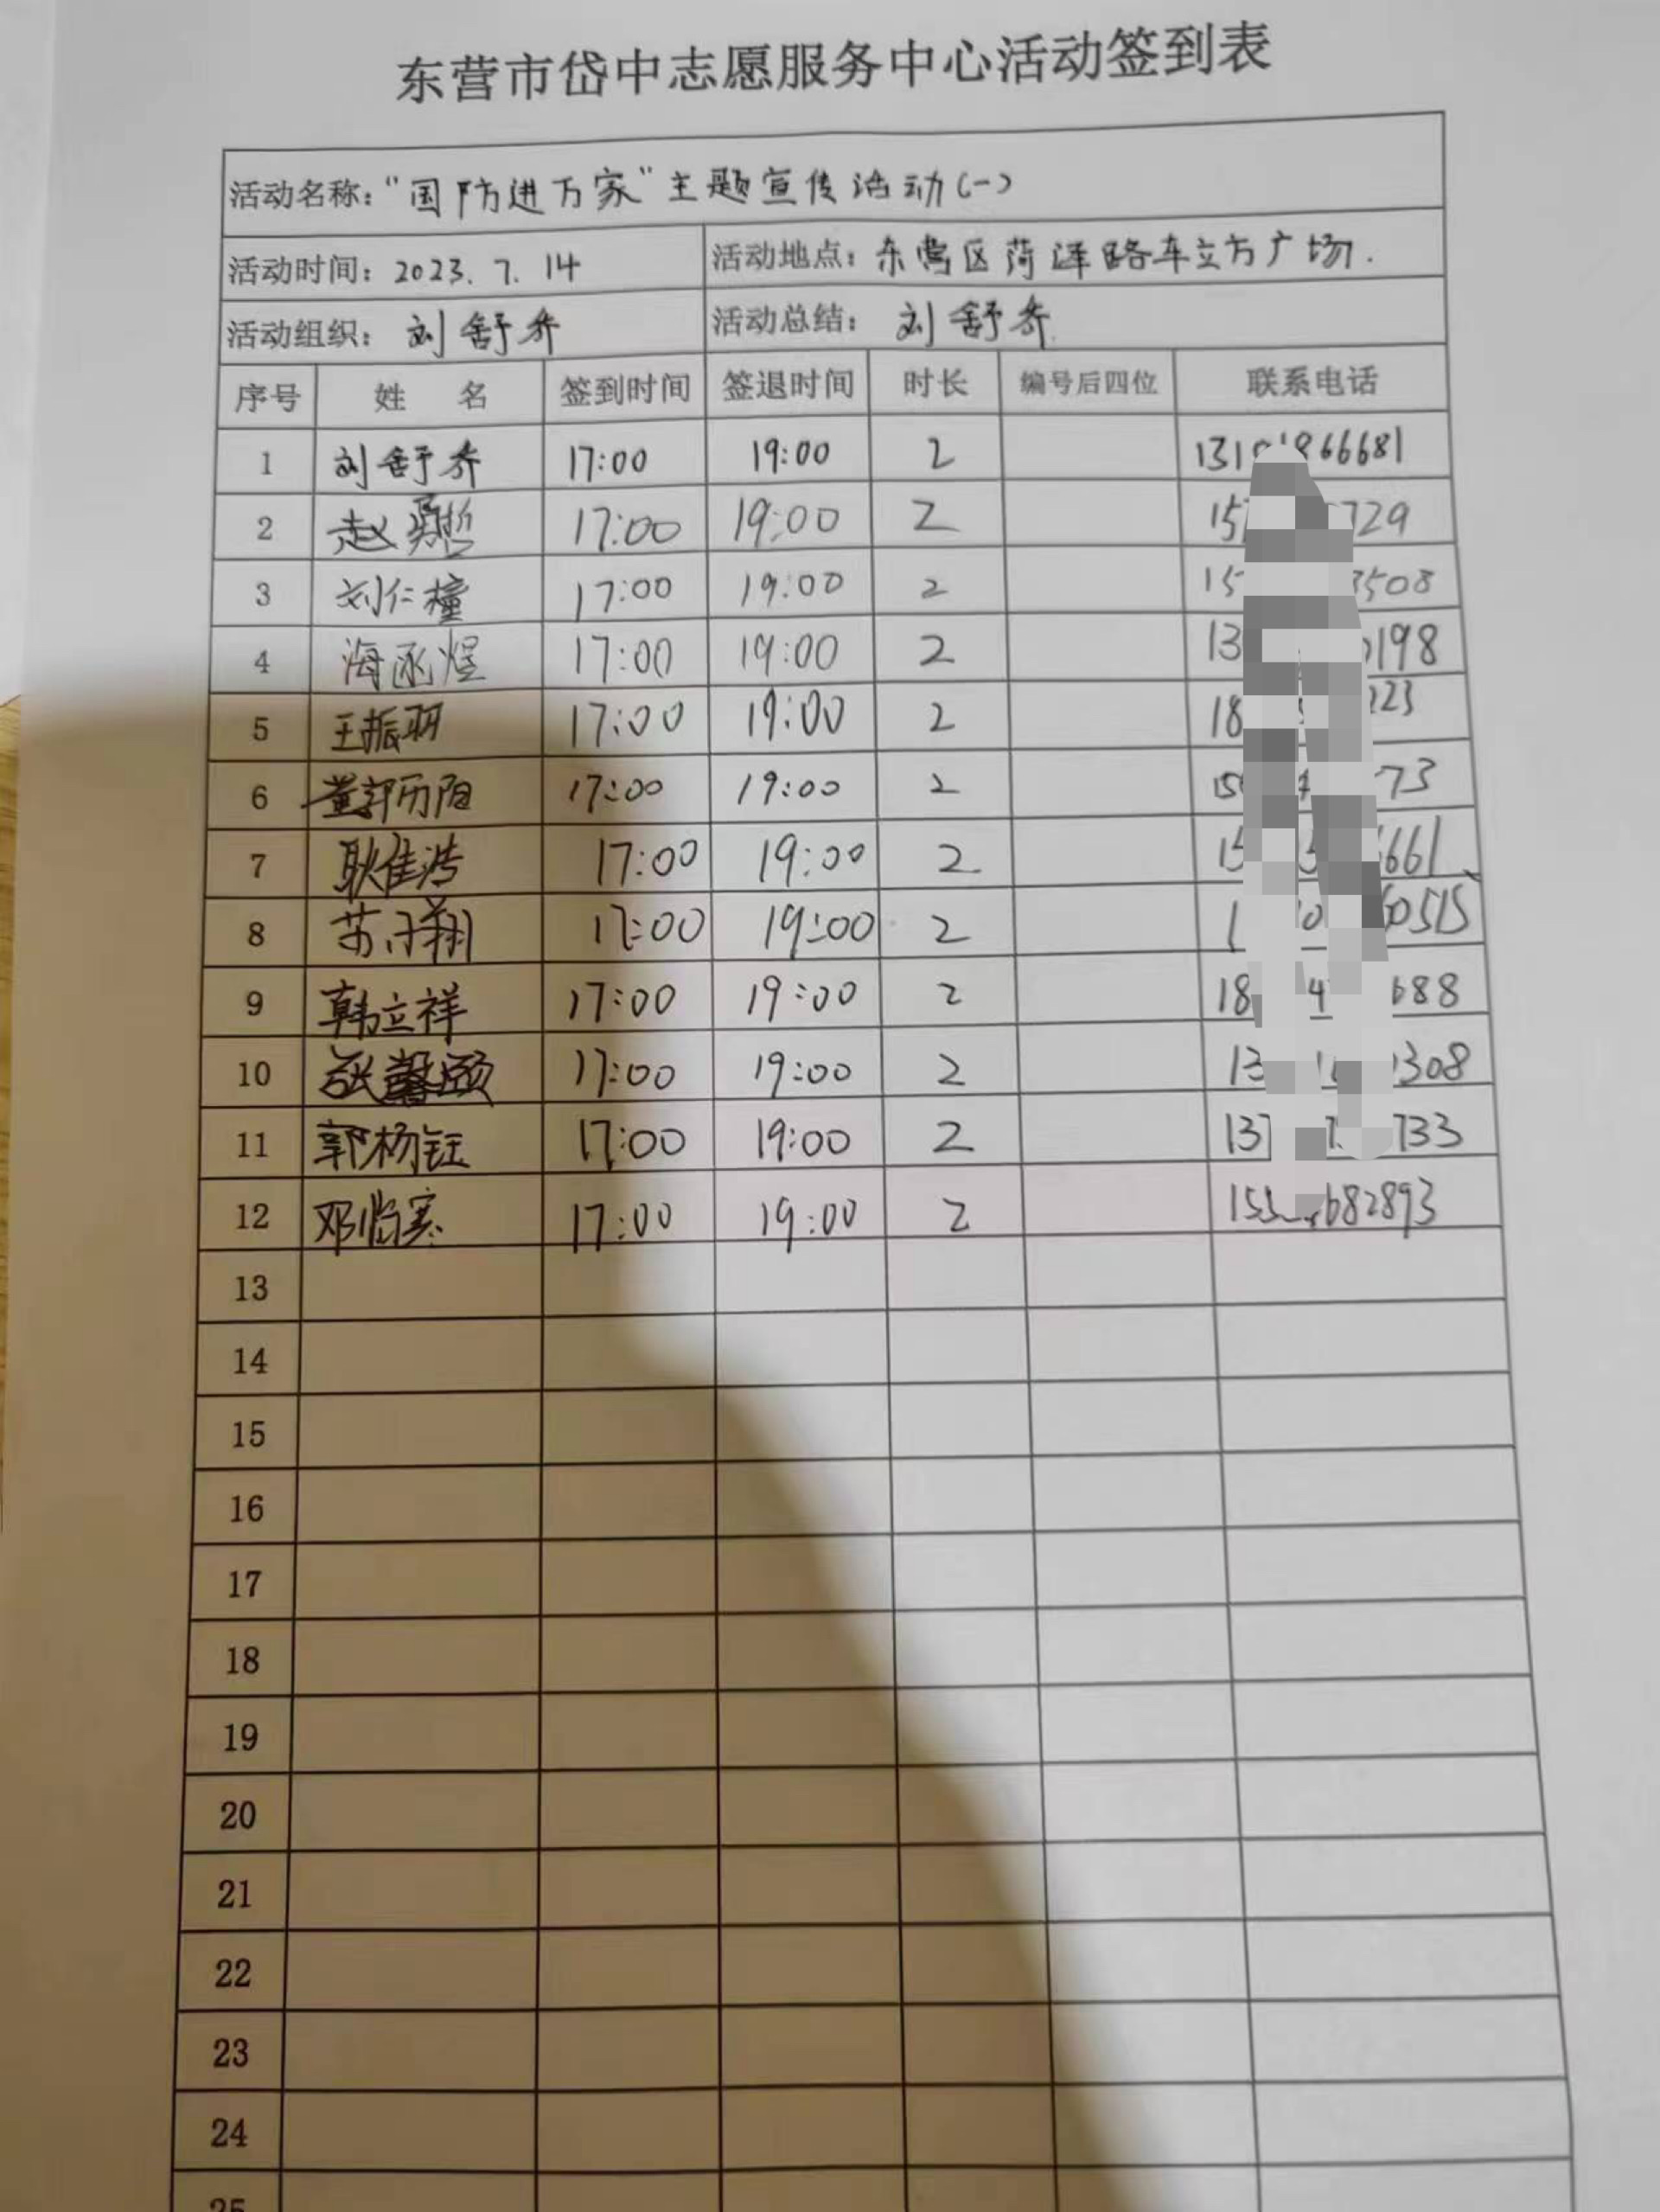 东营市岱中志愿服务中心活动签到表
活动名称：“国防进万家”主题宣传活动(一)
活动时间：2023.7.14 活动地点：东营区菏泽路车立方广场.
活动组织：刘舒乔 活动总结：刘舒乔
序号 姓 名 签到时间 签退时间 时长 编号后四位 联系电话
1 刘舒乔 17:00 19:00 2 131 866681
2 赵 哲 17:00 19:00 2 15 729
3 刘仁橦 17:00 19:00 2 15 3508
4 海函煜 17:00 19:00 2 13 198
5 王振羽 17:00 19:00 2 18 223
6 董郭历阳 17:00 19:00 2 15 73
7 耿佳浩 17:00 19:00 2 15 661
8 苏子翔 17:00 19:00 2 1 0 0515
9 韩立祥 17:00 19:00 2 18 4 688
10 张馨颐 17:00 19:00 2 13 308
11 郭杨钰 17:00 19:00 2 137 733
12 邓临寒 17:00 19:00 2 155 682893
13
14
15
16
17
18
19
20
21
22
23
24
25